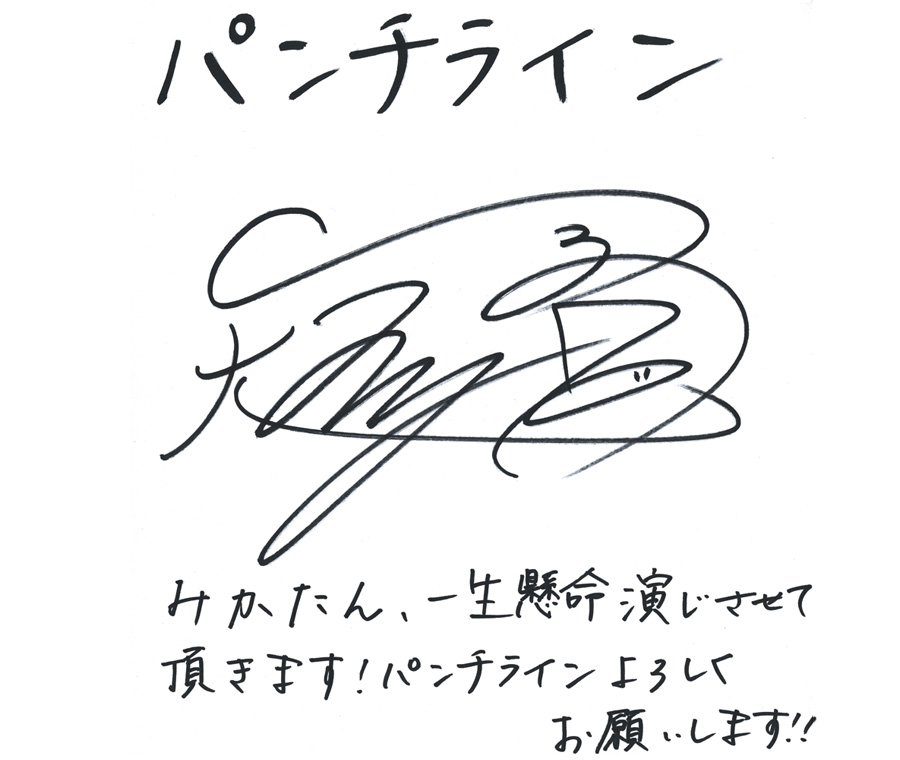 パンチライン
みかたん、一生懸命演じさせて
頂きます!パンチラインよろしく
お願いします!!